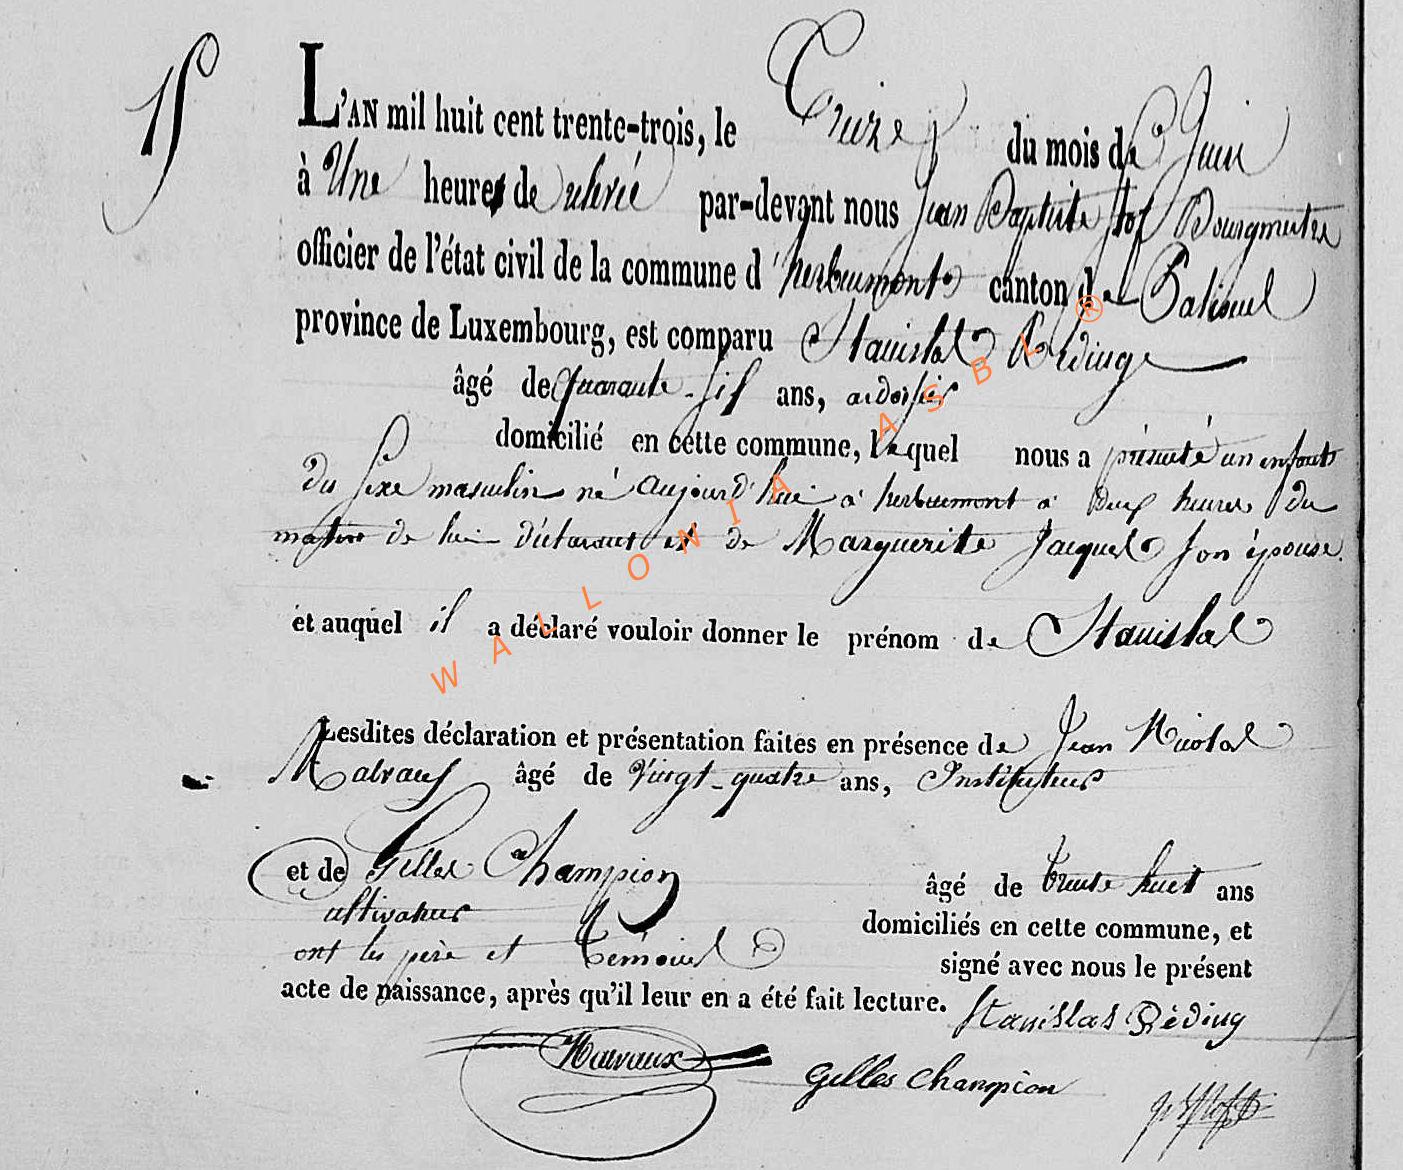 15
L'AN mil huit cent trente-trois, le Treize du mois de Juin
à Une heure de relevée par-devant nous Jean Baptiste Bourgmestre
officier de l'état civil de la commune d'herbeumont canton de Paliseul
province de Luxembourg, est comparu Stanislas Réding
âgé de quarante-six ans, ardoisier
domicilié en cette commune, lequel nous a présenté un enfant
du sexe masculin né aujourd'hui à herbeumont à deux heures du
matin de lui déclarant et de Marguerite Jacques son épouse.
et auquel il a déclaré vouloir donner le prénom de Stanislas
Lesdites déclaration et présentation faites en présence de Jean Nicolas
âgé de vingt-quatre ans, Instituteur
et de Gilles Champion âgé de trente huit ans
cultivateur domiciliés en cette commune, et
ont les père et témoins signé avec nous le présent
acte de naissance, après qu'il leur en a été fait lecture.
Stanislas Réding
Gilles Champion
WALLONIA ASBL®